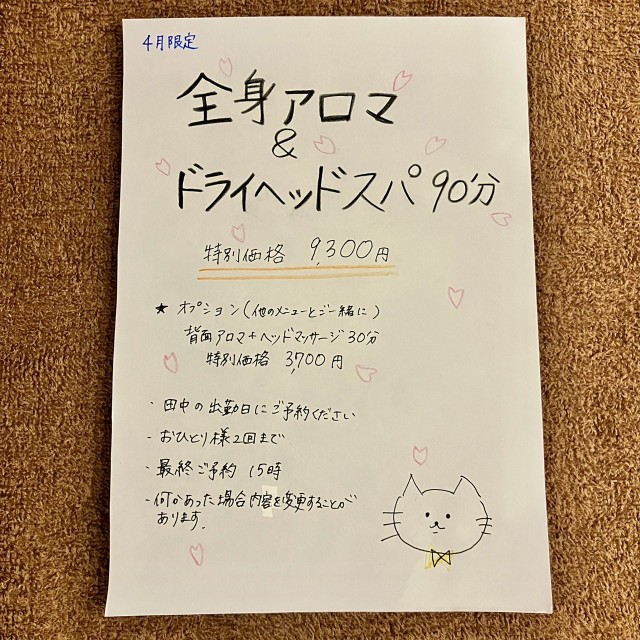 4月限定
全身アロマ
&
ドライヘッドスパ 90分
特別価格 9,300円
★ オプション(他のメニューとご一緒に)
背面アロマ+ヘッドマッサージ30分
特別価格 3,700円
・田中の出勤日にご予約ください
・おひとり様2回まで
・最終ご予約 15時
・何かあった場合内容を変更することが
あります.